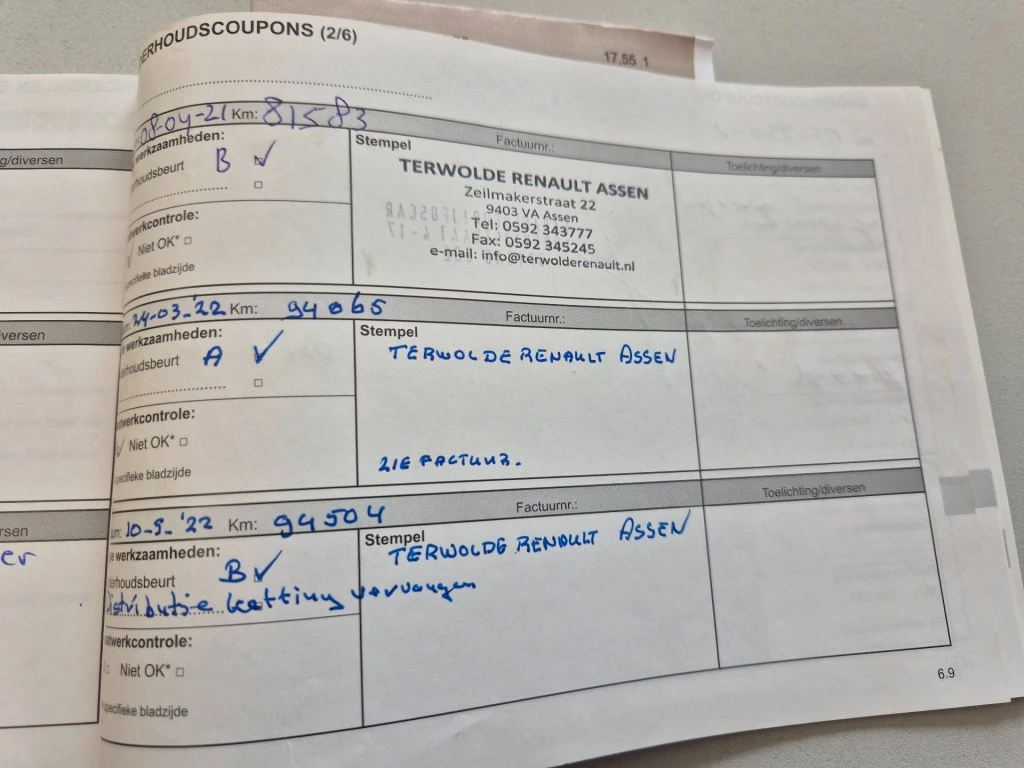 ERHOUDSCOUPONS (2/6)
17,55 1
08-04-21 Km: 81583
Factuurnr.:
Toelichting/diversen
g/diversen
erkzaamheden:
houdsbeurt B ✓
Stempel
TERWOLDE RENAULT ASSEN
Zeilmakerstraat 22
9403 VA Assen
Tel: 0592 343777
Fax: 0592 345245
e-mail: info@terwolderenault.nl
werkcontrole:
Niet OK* □
specifieke bladzijde
24-03-'22 Km: 94065
Factuurnr.:
Toelichting/diversen
versen
werkzaamheden:
erhoudsbeurt A ✓
Stempel
TERWOLDE RENAULT ASSEN
ZIE FACTUUR.
twerkcontrole:
Niet OK* □
specifieke bladzijde
um: 10-5-'22 Km: 94504
Factuurnr.:
Toelichting/diversen
rsen
er
e werkzaamheden:
erhoudsbeurt B ✓
distributie ketting vervangen
Stempel
TERWOLDE RENAULT ASSEN
atwerkcontrole:
Niet OK* □
specifieke bladzijde
6.9